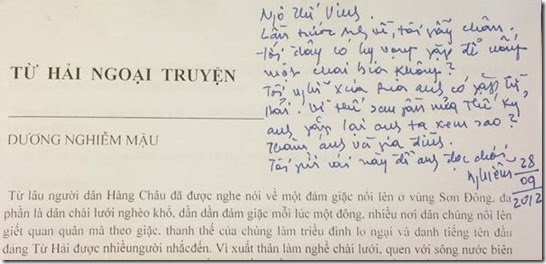 Ngô Thế Vinh,
Lần trước anh về, tôi gẫy chân.
Tới đây có hy vọng gặp để uống
một chai bia không?
Tôi nghĩ xưa kia anh có gặp Từ
Hải. Vì thế sau gần nửa thế kỷ
anh gặp lại anh ta xem sao?
Thăm anh và gia đình.
Tôi gửi cái này để anh đọc chơi
Nghiễm 28/09/2012
TỪ HẢI NGOẠI TRUYỆN
DƯƠNG NGHIỄM MẬU
Từ lâu người dân Hàng Châu đã được nghe nói về một đám giặc nổi lên ở vùng Sơn Đông, đa
phần là dân chài lưới nghèo khổ, dần dần đám giặc mỗi lúc một đông, nhiều nơi dân chúng nổi lên
giết quan quân mà theo giặc, thanh thế của chúng làm triều đình lo ngại và danh tiếng tên đầu
đảng Từ Hải được nhiềungười nhắcđến. Vì xuất thân làm nghề chài lưới, quen với sông nước biển